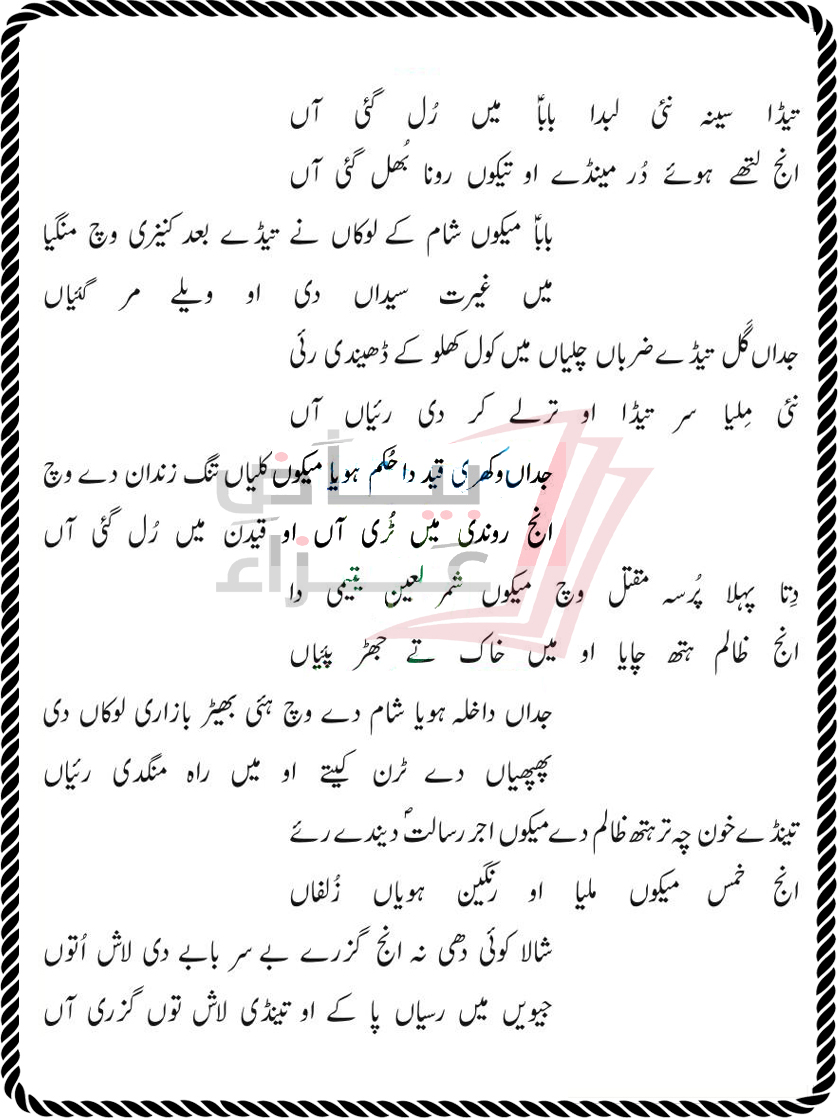 تیڈا سینہ نئی لبدا باباؑ میں رُل گئی آں
انج لتھے ہوئے دُر مینڈے او تیکوں رونا بُھل گئی آں
باباؑ میکوں شام کے لوکاں نے تیڈے بعد کنیزی وچ منگیا
میں غیرت سیداں دی او ویلے مر گئیاں
جداں گَل تیڈے ضرباں چلیاں میں کول کھلو کے ڈھیندی رئی
نئی مِلیا سر تیڈا او ترلے کر دی رئیاں آں
جداں وکھری قید دا حُکم ہویا میکوں کلیاں تنگ زندان دے وچ
انج روندی میں ٹُری آں او قیدن میں رُل گئی آں
دِتا پہلا پُرسہ مقتل وچ میکوں شمر لعین یتیمی دا
انج ظالم ہتھ چایا او میں خاک تے جھڑ پئیاں
جداں داخلہ ہویا شام دے وچ ہئی بھیڑ بازاری لوکاں دی
پھپھیاں دے ٹرن کیتے او میں راہ منگدی رئیاں
تینڈے خون چہ تر ہتھ ظالم دے میکوں اجر رسالتؐ دیندے رئے
انج خمس میکوں ملیا او رنگین ہویاں زُلفاں
شالا کوئی دھی نہ انج گزرے بے سر بابے دی لاش اُتوں
جیویں میں رسیاں پا کے او تینڈی لاش توں گزری آں
بیاٰنِ
عَزاء